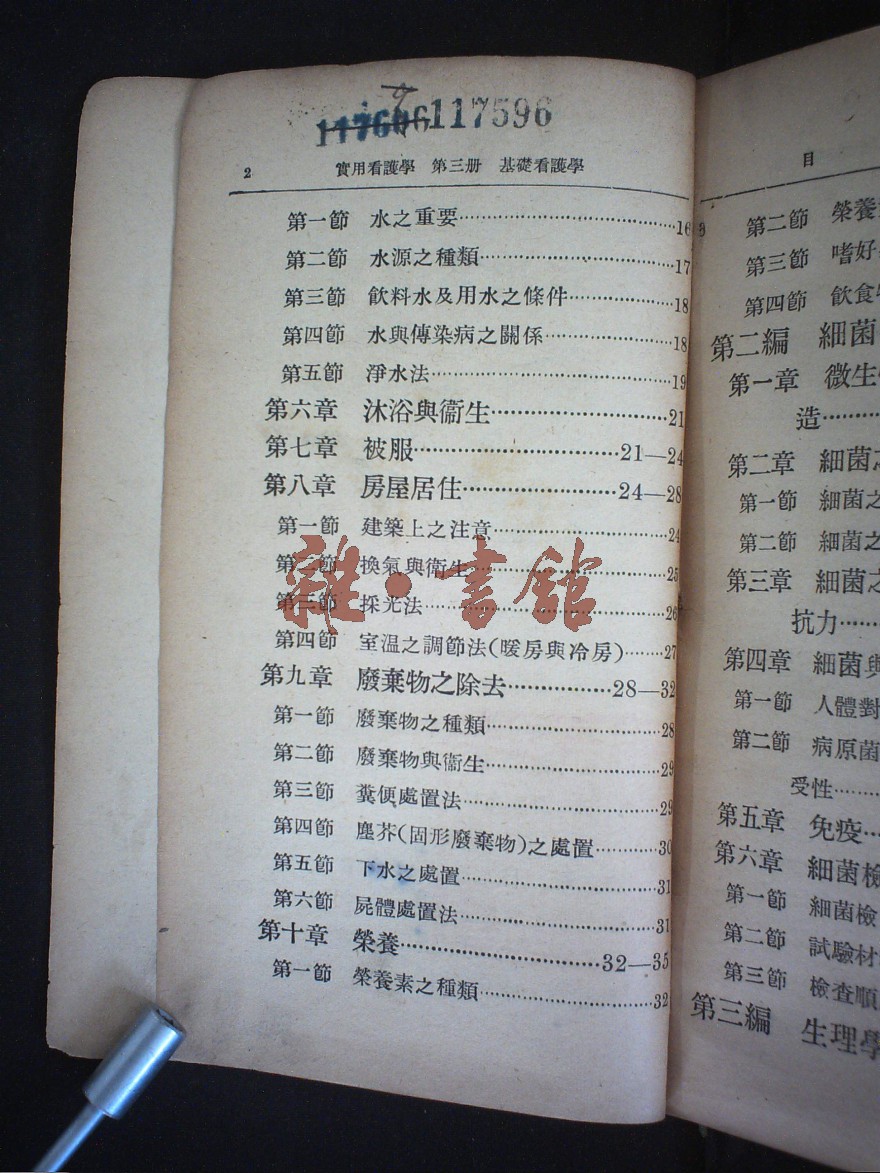 117596
2 實用看護學 第三册 基礎看護學
第一節 水之重要 16
第二節 水源之種類 17
第三節 飲料水及用水之條件 18
第四節 水與傳染病之關係 18
第五節 淨水法 19
第六章 沐浴與衞生 21
第七章 被服 21—24
第八章 房屋居住 24—28
第一節 建築上之注意 24
第二節 換氣與衞生 25
第三節 採光法 26
第四節 室温之調節法(暖房與冷房) 27
第九章 廢棄物之除去 28—32
第一節 廢棄物之種類 28
第二節 廢棄物與衞生 29
第三節 糞便處置法 29
第四節 塵芥(固形廢棄物)之處置 30
第五節 下水之處置 31
第六節 屍體處置法 31
第十章 榮養 32—35
第一節 榮養素之種類 32
雜·書館
目
第二節 榮養
第三節 嗜好
第四節 飲食
第二編 細菌
第一章 微生
造
第二章 細菌之
第一節 細菌之
第二節 細菌之
第三章 細菌之
抗力
第四章 細菌與
第一節 人體對
第二節 病原菌
受性
第五章 免疫
第六章 細菌檢
第一節 細菌檢
第二節 試驗材
第三節 檢查順
第三編 生理學